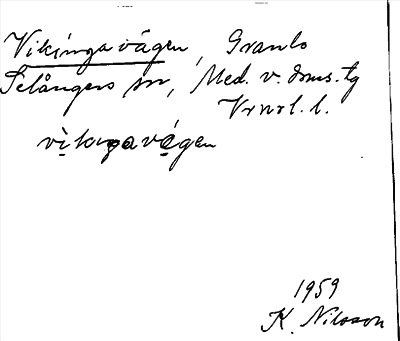 Vikingavägen, Granlo
Selångers sn, Med. v. doms. tg
Vrnrl. l.
vikingavägen
1959
K. Nilsson